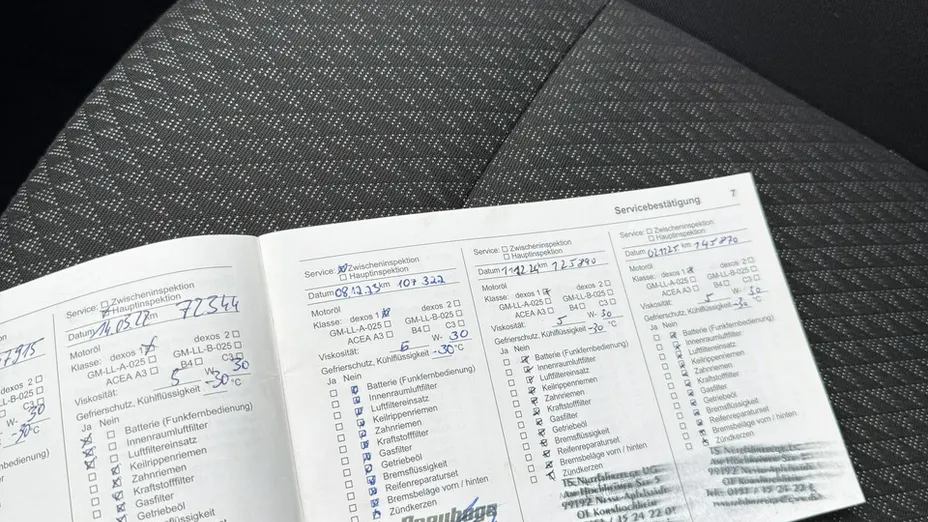 Servicebestätigung 7
7915
dexos 2
LL-B-025
C3
W- 30
-30 °C
nbedienung)
Service: Zwischeninspektion
Hauptinspektion
Datum 14.05.22 km 72344
Motoröl
Klasse: dexos 1 dexos 2
GM-LL-A-025 GM-LL-B-025
ACEA A3 B4 C3
Viskosität: 5 W- 30
Gefrierschutz, Kühlflüssigkeit -30 °C
Ja Nein
Batterie (Funkfernbedienung)
Innenraumluftfilter
Luftfiltereinsatz
Keilrippenriemen
Zahnriemen
Kraftstofffilter
Gasfilter
Getriebeöl
Service: Zwischeninspektion
Hauptinspektion
Datum 08.12.23 km 107 322
Motoröl
Klasse: dexos 1 dexos 2
GM-LL-A-025 GM-LL-B-025
ACEA A3 B4 C3
Viskosität: W- 30
Gefrierschutz, Kühlflüssigkeit -30 °C
Ja Nein
Batterie (Funkfernbedienung)
Innenraumluftfilter
Luftfiltereinsatz
Keilrippenriemen
Zahnriemen
Kraftstofffilter
Gasfilter
Getriebeöl
Bremsflüssigkeit
Reifenreparaturset
Bremsbeläge vorn / hinten
Zündkerzen
Service: Zwischeninspektion
Hauptinspektion
Datum 24 km 125890
Motoröl
Klasse: dexos 1 dexos 2
GM-LL-A-025 GM-LL-B-025
ACEA A3 B4 C3
Viskosität: 5 W- 30
Gefrierschutz, Kühlflüssigkeit -30 °C
Ja Nein
Batterie (Funkfernbedienung)
Innenraumluftfilter
Luftfiltereinsatz
Keilrippenriemen
Zahnriemen
Kraftstofffilter
Gasfilter
Getriebeöl
Bremsflüssigkeit
Reifenreparaturset
Bremsbeläge vorn / hinten
Zündkerzen
TS Nutzfahrzeuge UG
99192 Nesse-Apfelstädt
OT Kornhochheim
/ 15 24 22 0
Service: Zwischeninspektion
Hauptinspektion
Datum 25 km 145 870
Motoröl
Klasse: dexos 1 dexos 2
GM-LL-A-025 GM-LL-B-025
ACEA A3 B4 C3
Viskosität: 5 W- 30
Gefrierschutz, Kühlflüssigkeit -30 °C
Ja Nein
Batterie (Funkfernbedienung)
Innenraumluftfilter
Luftfiltereinsatz
Keilrippenriemen
Zahnriemen
Kraftstofffilter
Gasfilter
Getriebeöl
Bremsflüssigkeit
Reifenreparaturset
Bremsbeläge vorn / hinten
Zündkerzen
TS Nutzfahrzeuge UG
99192 Nesse-Apfelstädt